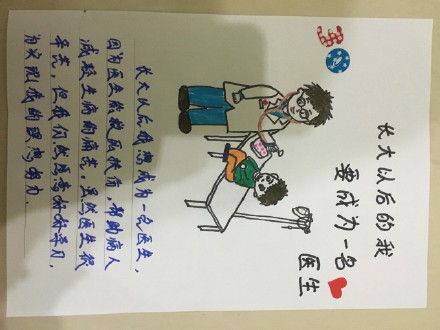 长大以后的我
要成为一名
医生
长大以后我想成为一名医生,
因为医生能救死扶伤,帮助病人
减轻生病的痛苦。虽然医生很
辛苦,但我仍然需要好好学习,
为实现我的理想努力。